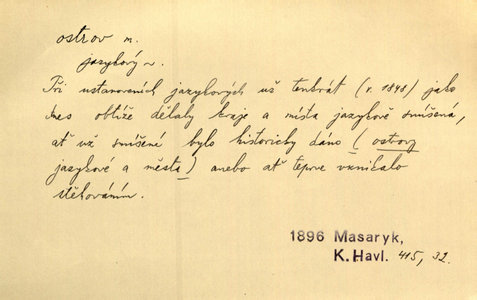 ostrov m.
jazykový ~.
Při ustanoveních jazykových už tenkrát (r. 1848) jako
dnes obtíže dělaly kraje a místa jazykově smíšená,
ať už smíšené bylo historicky dáno (ostrovy
jazykové a města) anebo ať teprve vznikalo
stěhováním.
1896 Masaryk,
K. Havl. 415, 32.